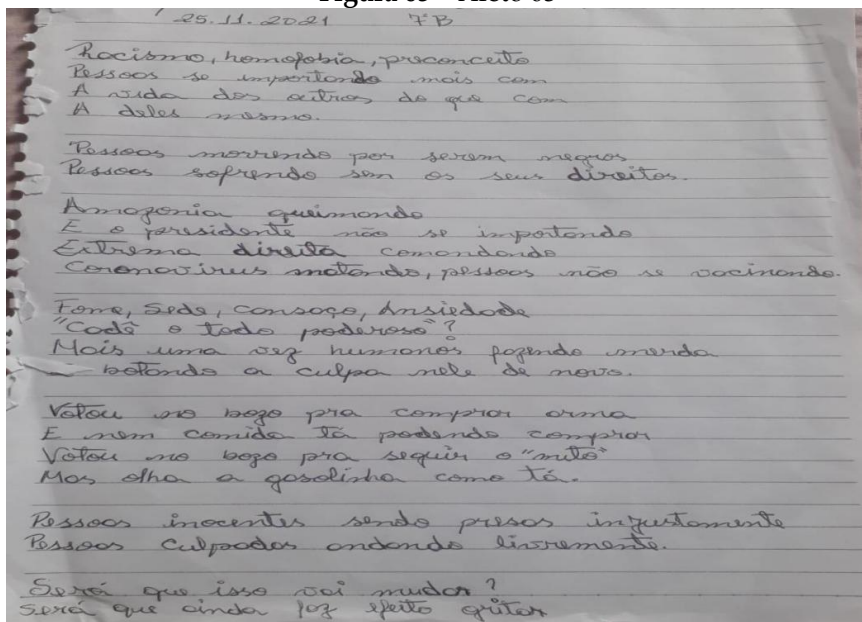 25.11.2021 7°B
Racismo, homofobia, preconceito
Pessoas se importando mais com
A vida dos outros do que com
A deles mesmo.
Pessoas morrendo por serem negros
Pessoas sofrendo sem os seus direitos.
Amazonia queimando
E o presidente não se importando
Extrema direita comandando
Coronavirus matando, pessoas não se vacinando.
Fome, Sede, cansaço, Ansiedade
"Cadê o todo poderoso"?
Mais uma vez humanos fazendo merda
botando a culpa nele de novo.
Votou no bozo pra comprar arma
E nem comida tá podendo comprar
Votou no bozo pra seguir o "mito"
Mas olha a gasolinha como tá.
Pessoas inocentes sendo presas injustamente
Pessoas culpadas andando livremente.
Será que isso vai mudar?
Será que ainda faz efeito gritar